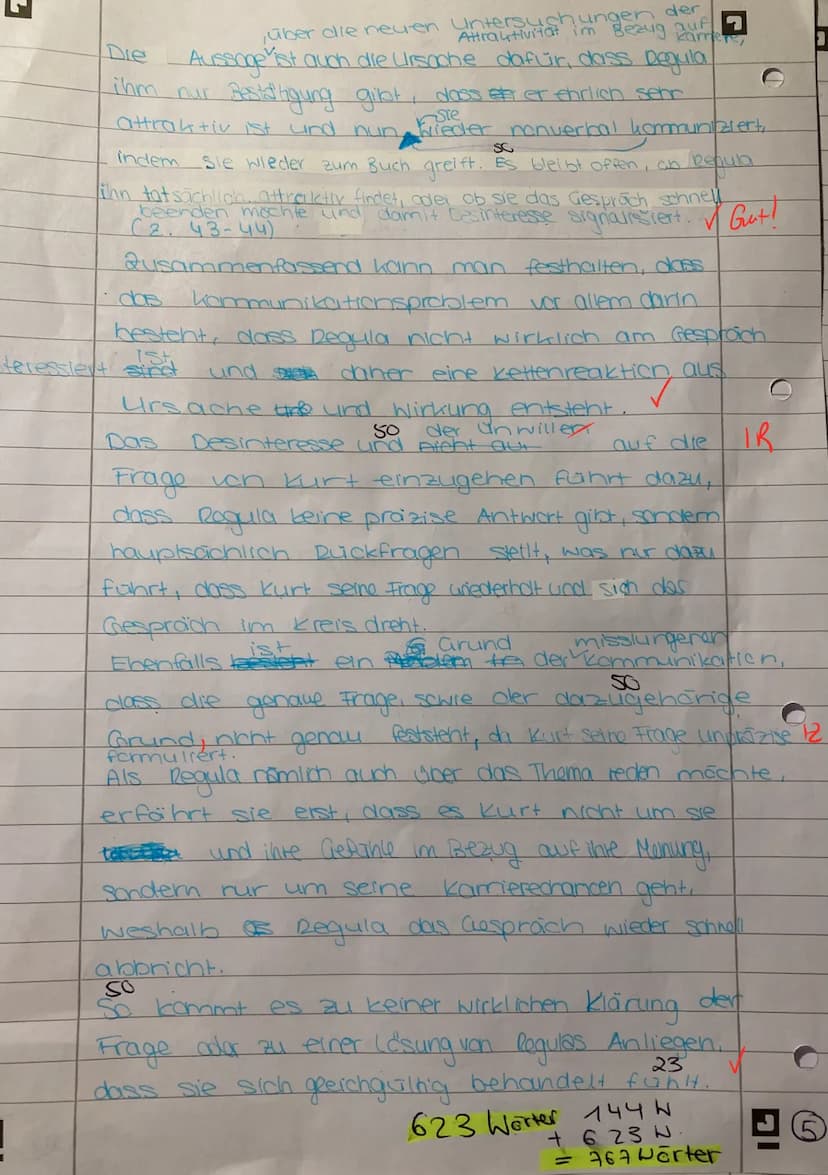 , über die neuen Untersuchungen der
Attraktivität im Bezug auf
Karriere,
Die Aussage ist auch die Ursache dafür, dass Regula
ihm nur Bestätigung gibt, dass er ehrlich sehr
attraktiv ist und nun wieder nonverbal kommuniziert,
sie
indem sie wieder zum Buch greift. Es bleibt offen, ob Regula
50
ihn tatsächlich attraktiv findet, oder ob sie das Gespräch schnell
beenden möchte und damit Desinteresse signalisiert. ✓ Gut!
(Z. 43-44)
Zusammenfassend kann man festhalten, dass
das Kommunikationsproblem vor allem darin
besteht, dass Regula nicht wirklich am Gespräch
teressiert ist und daher eine Kettenreaktion aus
Ursache und Wirkung entsteht. ✓
Das Desinteresse und der Unwillen auf die IR
50
Frage von Kurt einzugehen führt dazu,
dass Regula keine präzise Antwort gibt, sondern
hauptsächlich Rückfragen stellt, was nur dazu
führt, dass Kurt seine Frage wiederholt und sich das
Gespräch im Kreis dreht.
Ebenfalls ist ein Grund der misslungenen Kommunikation,
dass die genaue Frage, sowie der dazugehörige
50
Grund, nicht genau feststeht, da Kurt seine Frage unpräzise IZ
formuliert.
Als Regula nämlich auch über das Thema reden möchte,
erfährt sie erst, dass es Kurt nicht um sie
und ihre Gefühle im Bezug auf ihre Meinung,
sondern nur um seine Karrierechancen geht,
weshalb Regula das Gespräch wieder schnell
abbricht.
50
So kommt es zu keiner wirklichen Klärung der
Frage oder zu einer Lösung von Regulas Anliegen,
dass sie sich gleichgültig behandelt fühlt. ✓
23
623 Wörter 144 W
+ 623 W.
= 767 Wörter
5